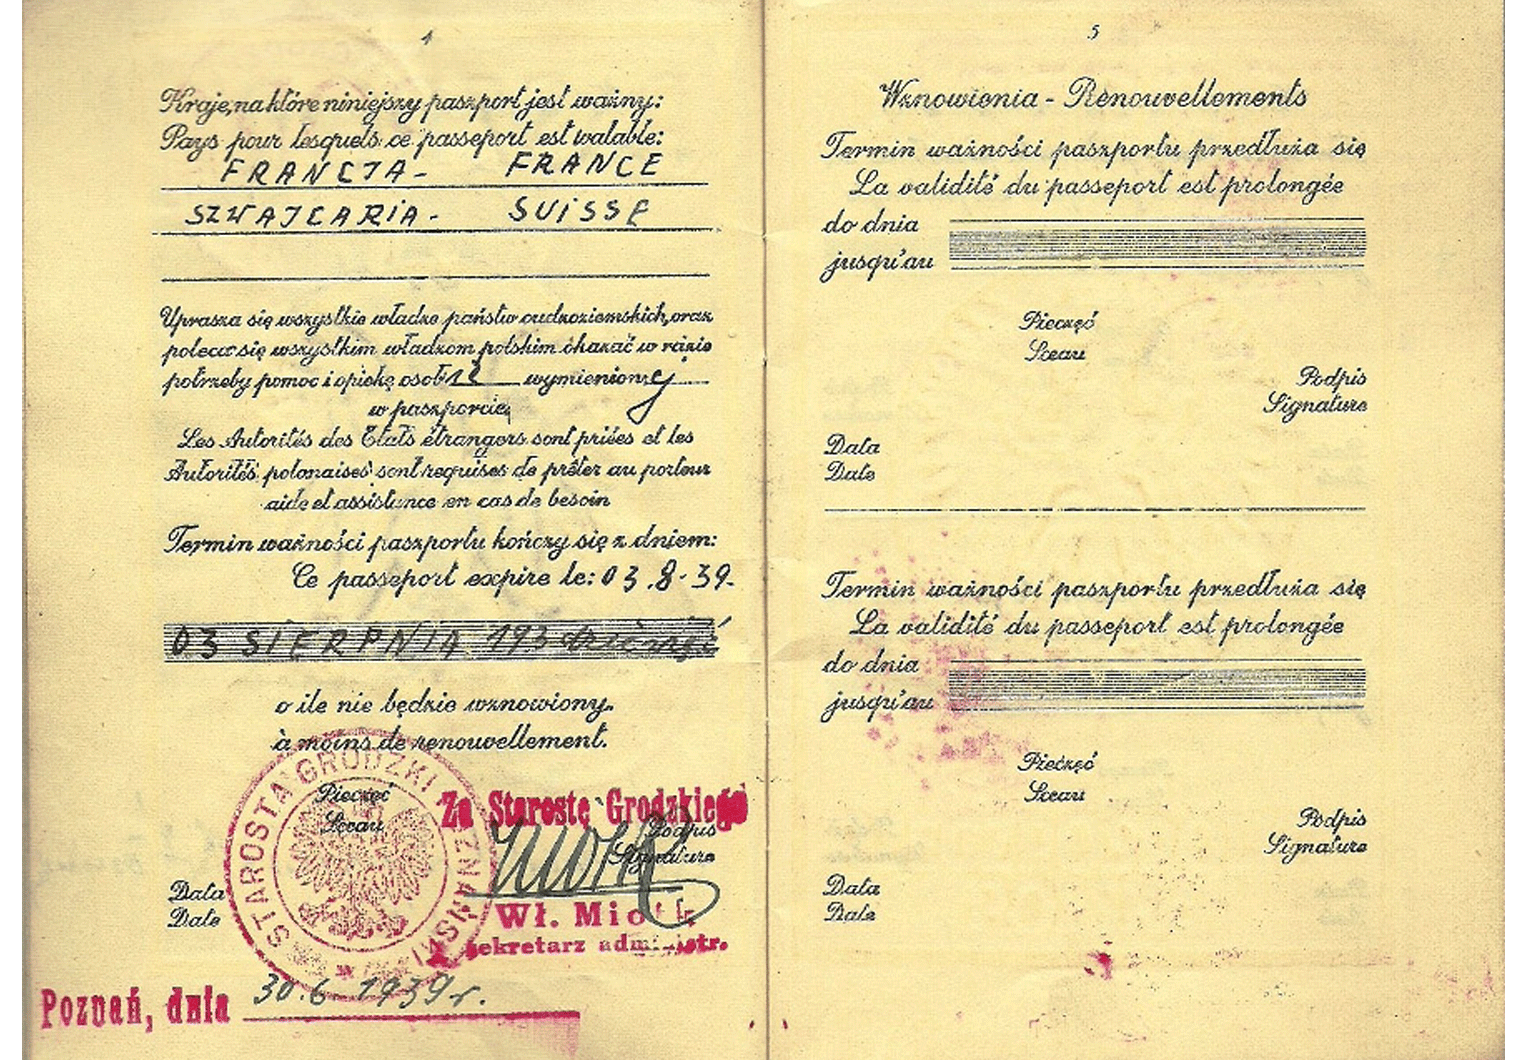 4
Kraje, na które niniejszy paszport jest ważny:
Pays pour lesquels ce passeport est walable:
FRANCJA - FRANCE
SZWAJCARIA - SUISSE
Uprasza się wszystkie władze państw cudzoziemskich, oraz
poleca się wszystkim władzom polskim okazać w razie
potrzeby pomoc i opiekę osob wymienionej
w paszporcie,
Les Autorités des Etats étrangers sont priées et les
Autorités polonaises sont requises de prêter au porteur
aide et assistance en cas de besoin
Termin ważności paszportu kończy się z dniem:
Ce passeport expire le: 03.8-39-
03 SIERPNIA 193 dziewięć
o ile nie będzie wznowiony.
à moins de renouvellement.
STAROSTA GRODZKI ZNAŃSKI
Pieczęć
Sceau
Za Starostę Grodzkiego
Podpis
Signature
Data
Date
Wł. Mio
sekretarz administr.
Poznań, dnia 30.6 1939 r.
5
Wznowienia - Renouvellements
Termin ważności paszportu przedłuża się
La validité du passeport est prolongée
do dnia
jusqu'au
Pieczęć
Sceau
Podpis
Signature
Data
Date
Termin ważności paszportu przedłuża się
La validité du passeport est prolongée
do dnia
jusqu'au
Pieczęć
Sceau
Podpis
Signature
Data
Date